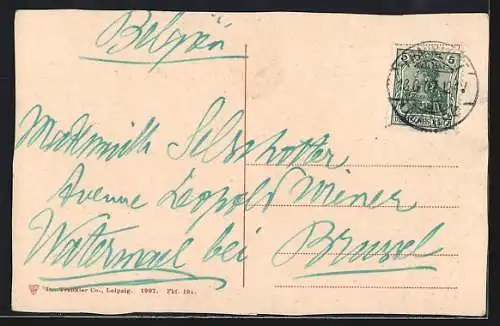 Belgien
Mademoiselle Selschotter
Avenue Leopold Wiener
Watermael bei Brüssel
Dr. Trenkler Co., Leipzig. 1907. Pkl. 194.
5 5